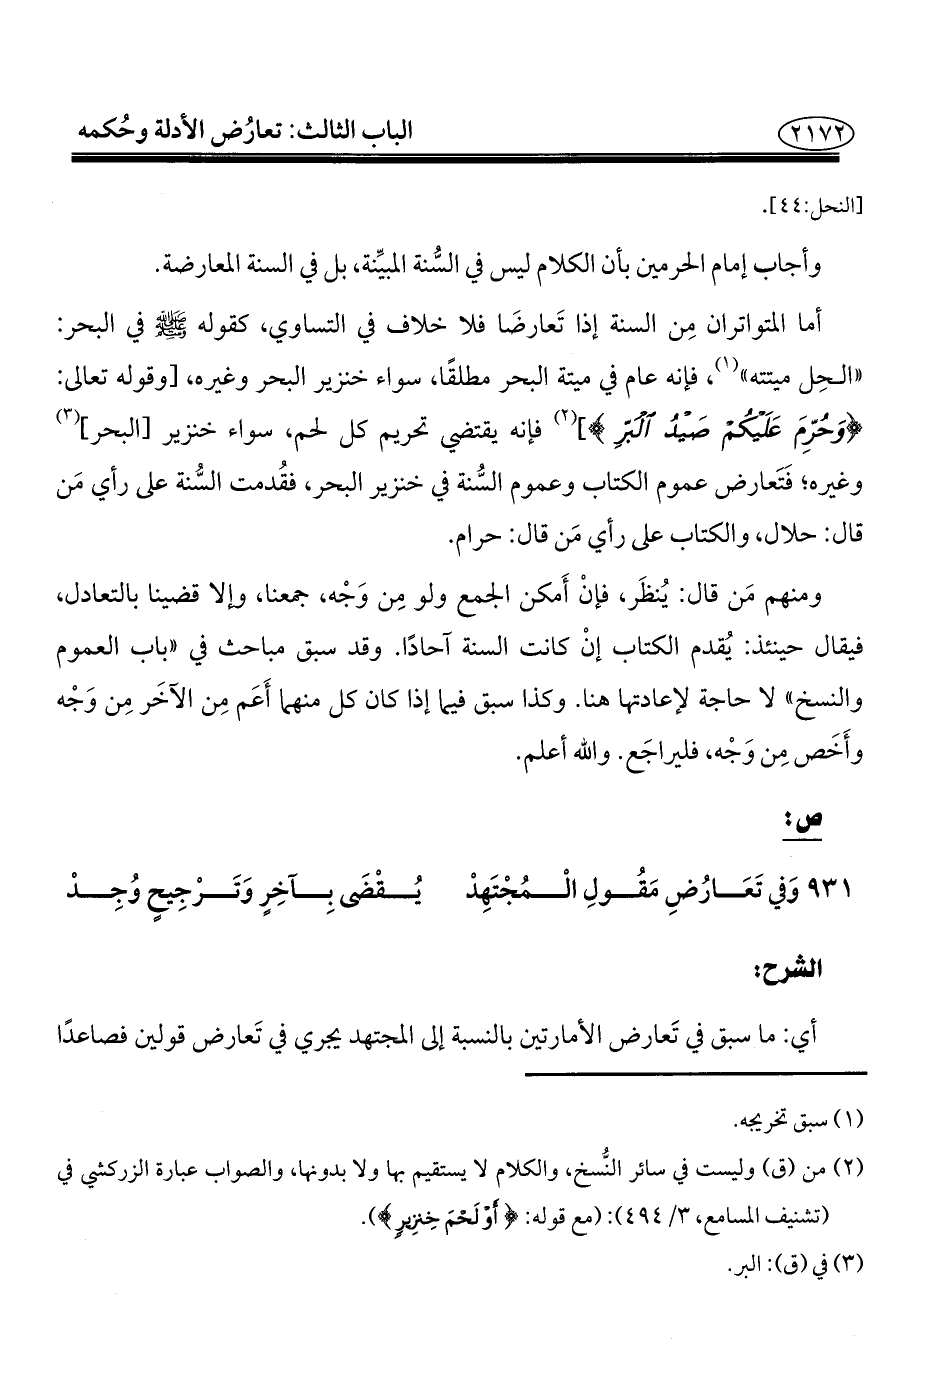 ٢١٧٢ الباب الثالث: تعارُض الأدلة وحُكمه
[النحل:٤٤].
وأجاب إمام الحرمين بأن الكلام ليس في السُّنة المبيِّنة، بل في السنة المعارضة.
أما المتواتران مِن السنة إذا تَعارضَا فلا خلاف في التساوي، كقوله ﷺ في البحر:
«الـحِل ميتته»(١)، فإنه عام في ميتة البحر مطلقًا، سواء خنزير البحر وغيره، [وقوله تعالى:
﴿وَحُرِّمَ عَلَيْكُمْ صَيْدُ ٱلْبَرِّ﴾](٢) فإنه يقتضي تحريم كل لحم، سواء خنزير [البحر](٣)
وغيره؛ فَتَعارض عموم الكتاب وعموم السُّنة في خنزير البحر، فقُدمت السُّنة على رأي مَن
قال: حلال، والكتاب على رأي مَن قال: حرام.
ومنهم مَن قال: يُنظَر، فإنْ أَمكن الجمع ولو مِن وَجْه، جمعنا، وإلا قضينا بالتعادل،
فيقال حينئذ: يُقدم الكتاب إنْ كانت السنة آحادًا. وقد سبق مباحث في «باب العموم
والنسخ» لا حاجة لإعادتها هنا. وكذا سبق فيما إذا كان كل منهما أَعَم مِن الآخَر مِن وَجْه
وأَخَص مِن وَجْه، فليراجَع. والله أعلم.
ص:
٩٣١ وَفي تَعَـارُضِ مَقُـولِ الْـمُجْتَهِدْ يُـقْضَى بِـآخِرٍ وَتَـرْجِيحٍ وُجِـدْ
الشرح:
أي: ما سبق في تَعارض الأمارتين بالنسبة إلى المجتهد يجري في تَعارض قولين فصاعدًا
(١) سبق تخريجه.
(٢) من (ق) وليست في سائر النُّسخ، والكلام لا يستقيم بها ولا بدونها، والصواب عبارة الزركشي في
(تشنيف المسامع، ٣/ ٤٩٤): (مع قوله: ﴿أَوْ لَحْمَ خِنزِيرٍ﴾).
(٣) في (ق): البر.